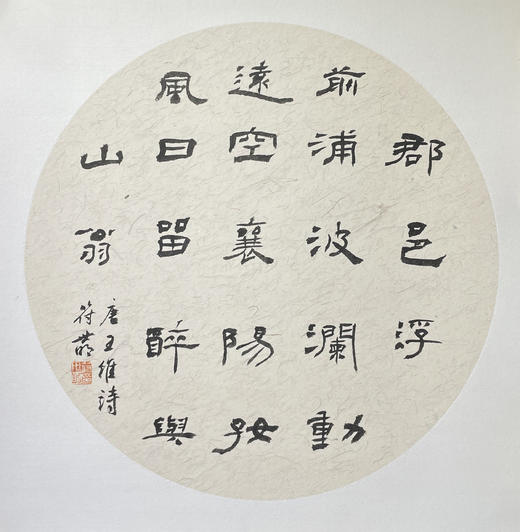 郡邑浮
前浦波瀾動
遠空襄陽好
風日留醉與
山翁
唐王維詩
符